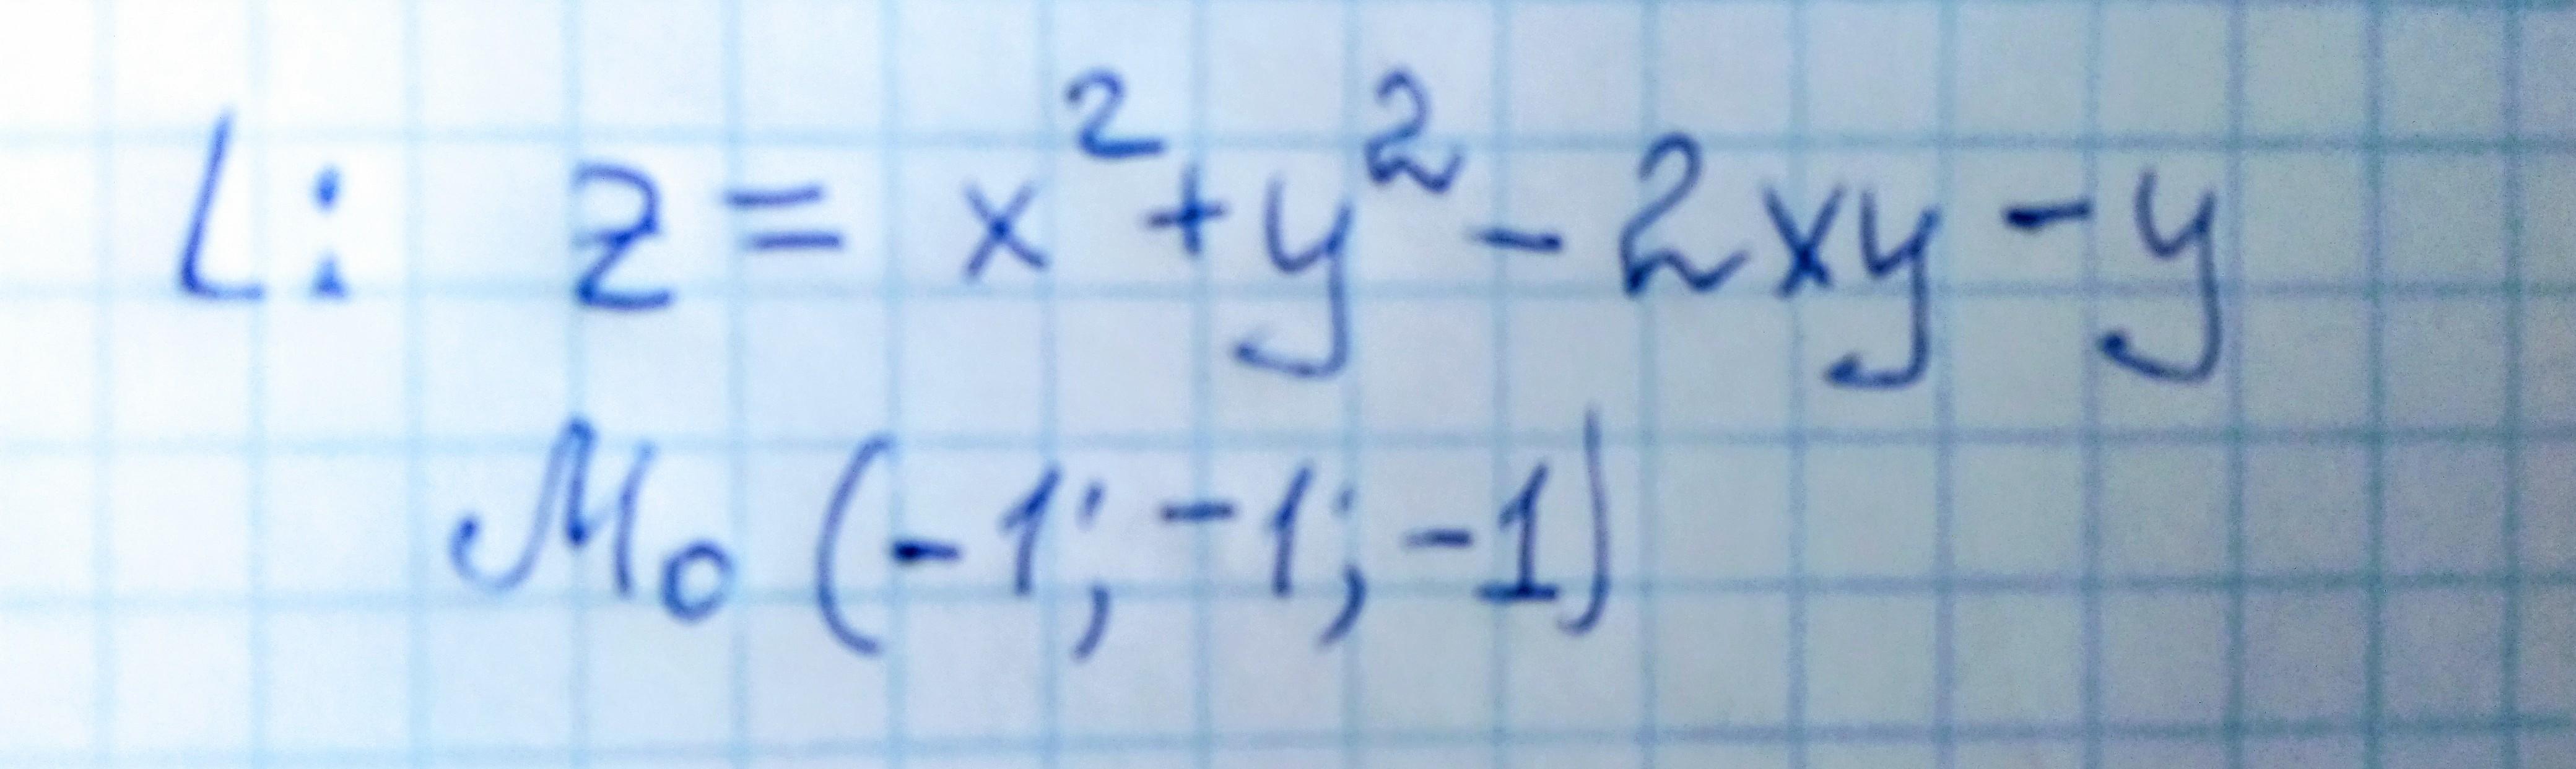 L: z = x² + y² - 2xy - y
M₀ (-1; -1; -1)